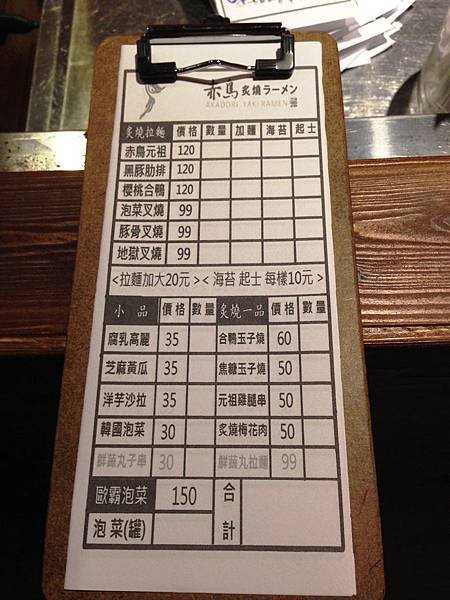 赤鳥 炙燒ラーメン
AKADORI YAKI RAMEN
炙燒拉麵 價格 數量 加麵 海苔 起士
赤鳥元祖 120
黑豚肋排 120
櫻桃合鴨 120
泡菜叉燒 99
豚骨叉燒 99
地獄叉燒 99
<拉麵加大20元> < 海苔 起士 每樣10元 >
小品 價格 數量 炙燒一品 價格 數量
腐乳高麗 35 合鴨玉子燒 60
芝麻黃瓜 35 焦糖玉子燒 50
洋芋沙拉 35 元祖雞腿串 50
韓國泡菜 30 炙燒梅花肉 50
鮮蔬丸子串 30 鮮蔬丸拉麵 99
歐霸泡菜 150 合計
泡菜(罐)